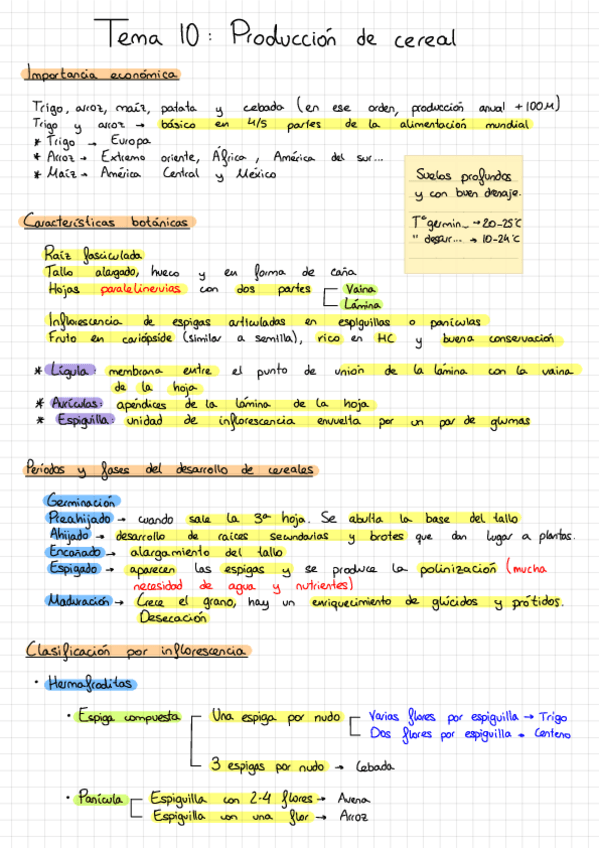 Tema 10: Producción de cereal
Importancia económica
Trigo, arroz, maíz, patata y cebada (en ese orden, producción anual +100M)
Trigo y arroz → básico en 4/5 partes de la alimentación mundial
* Trigo → Europa
* Arroz → Extremo oriente, África, América del sur...
* Maíz → América Central y México
Suelos profundos
y con buen drenaje.
Tª germin... → 20-25°C
" desarr... → 10-24°C
Características botánicas
Raíz fasciculada
Tallo alargado, hueco y en forma de caña
Hojas paralelinervias con dos partes
Vaina
Lámina
Inflorescencia de espigas articuladas en espiguillas o panículas
Fruto en cariópside (similar a semilla), rico en HC y buena conservación
* Lígula: membrana entre el punto de unión de la lámina con la vaina
de la hoja
* Aurículas: apéndices de la lámina de la hoja
* Espiguilla: unidad de inflorescencia envuelta por un par de glumas
Periodos y fases del desarrollo de cereales
Germinación
Preahijado → cuando sale la 3ª hoja. Se abulta la base del tallo
Ahijado → desarrollo de raíces secundarias y brotes que dan lugar a plantas.
Encañado → alargamiento del tallo
Espigado → aparecen las espigas y se produce la polinización (mucha
necesidad de agua y nutrientes)
Maduración → Crece el grano, hay un enriquecimiento de glúcidos y prótidos.
Desecación
Clasificación por inflorescencia
• Hermafroditas
• Espiga compuesta
Una espiga por nudo
Varias flores por espiguilla → Trigo
Dos flores por espiguilla → Centeno
3 espigas por nudo → Cebada
• Panícula
Espiguilla con 2-4 flores → Avena
Espiguilla con una flor → Arroz